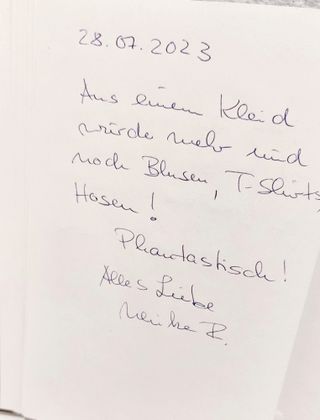 28.07.2023
Aus einem Kleid
würde mehr und
noch Blusen, T-Shirts
Hosen!
Phantastisch!
Alles Liebe
R.